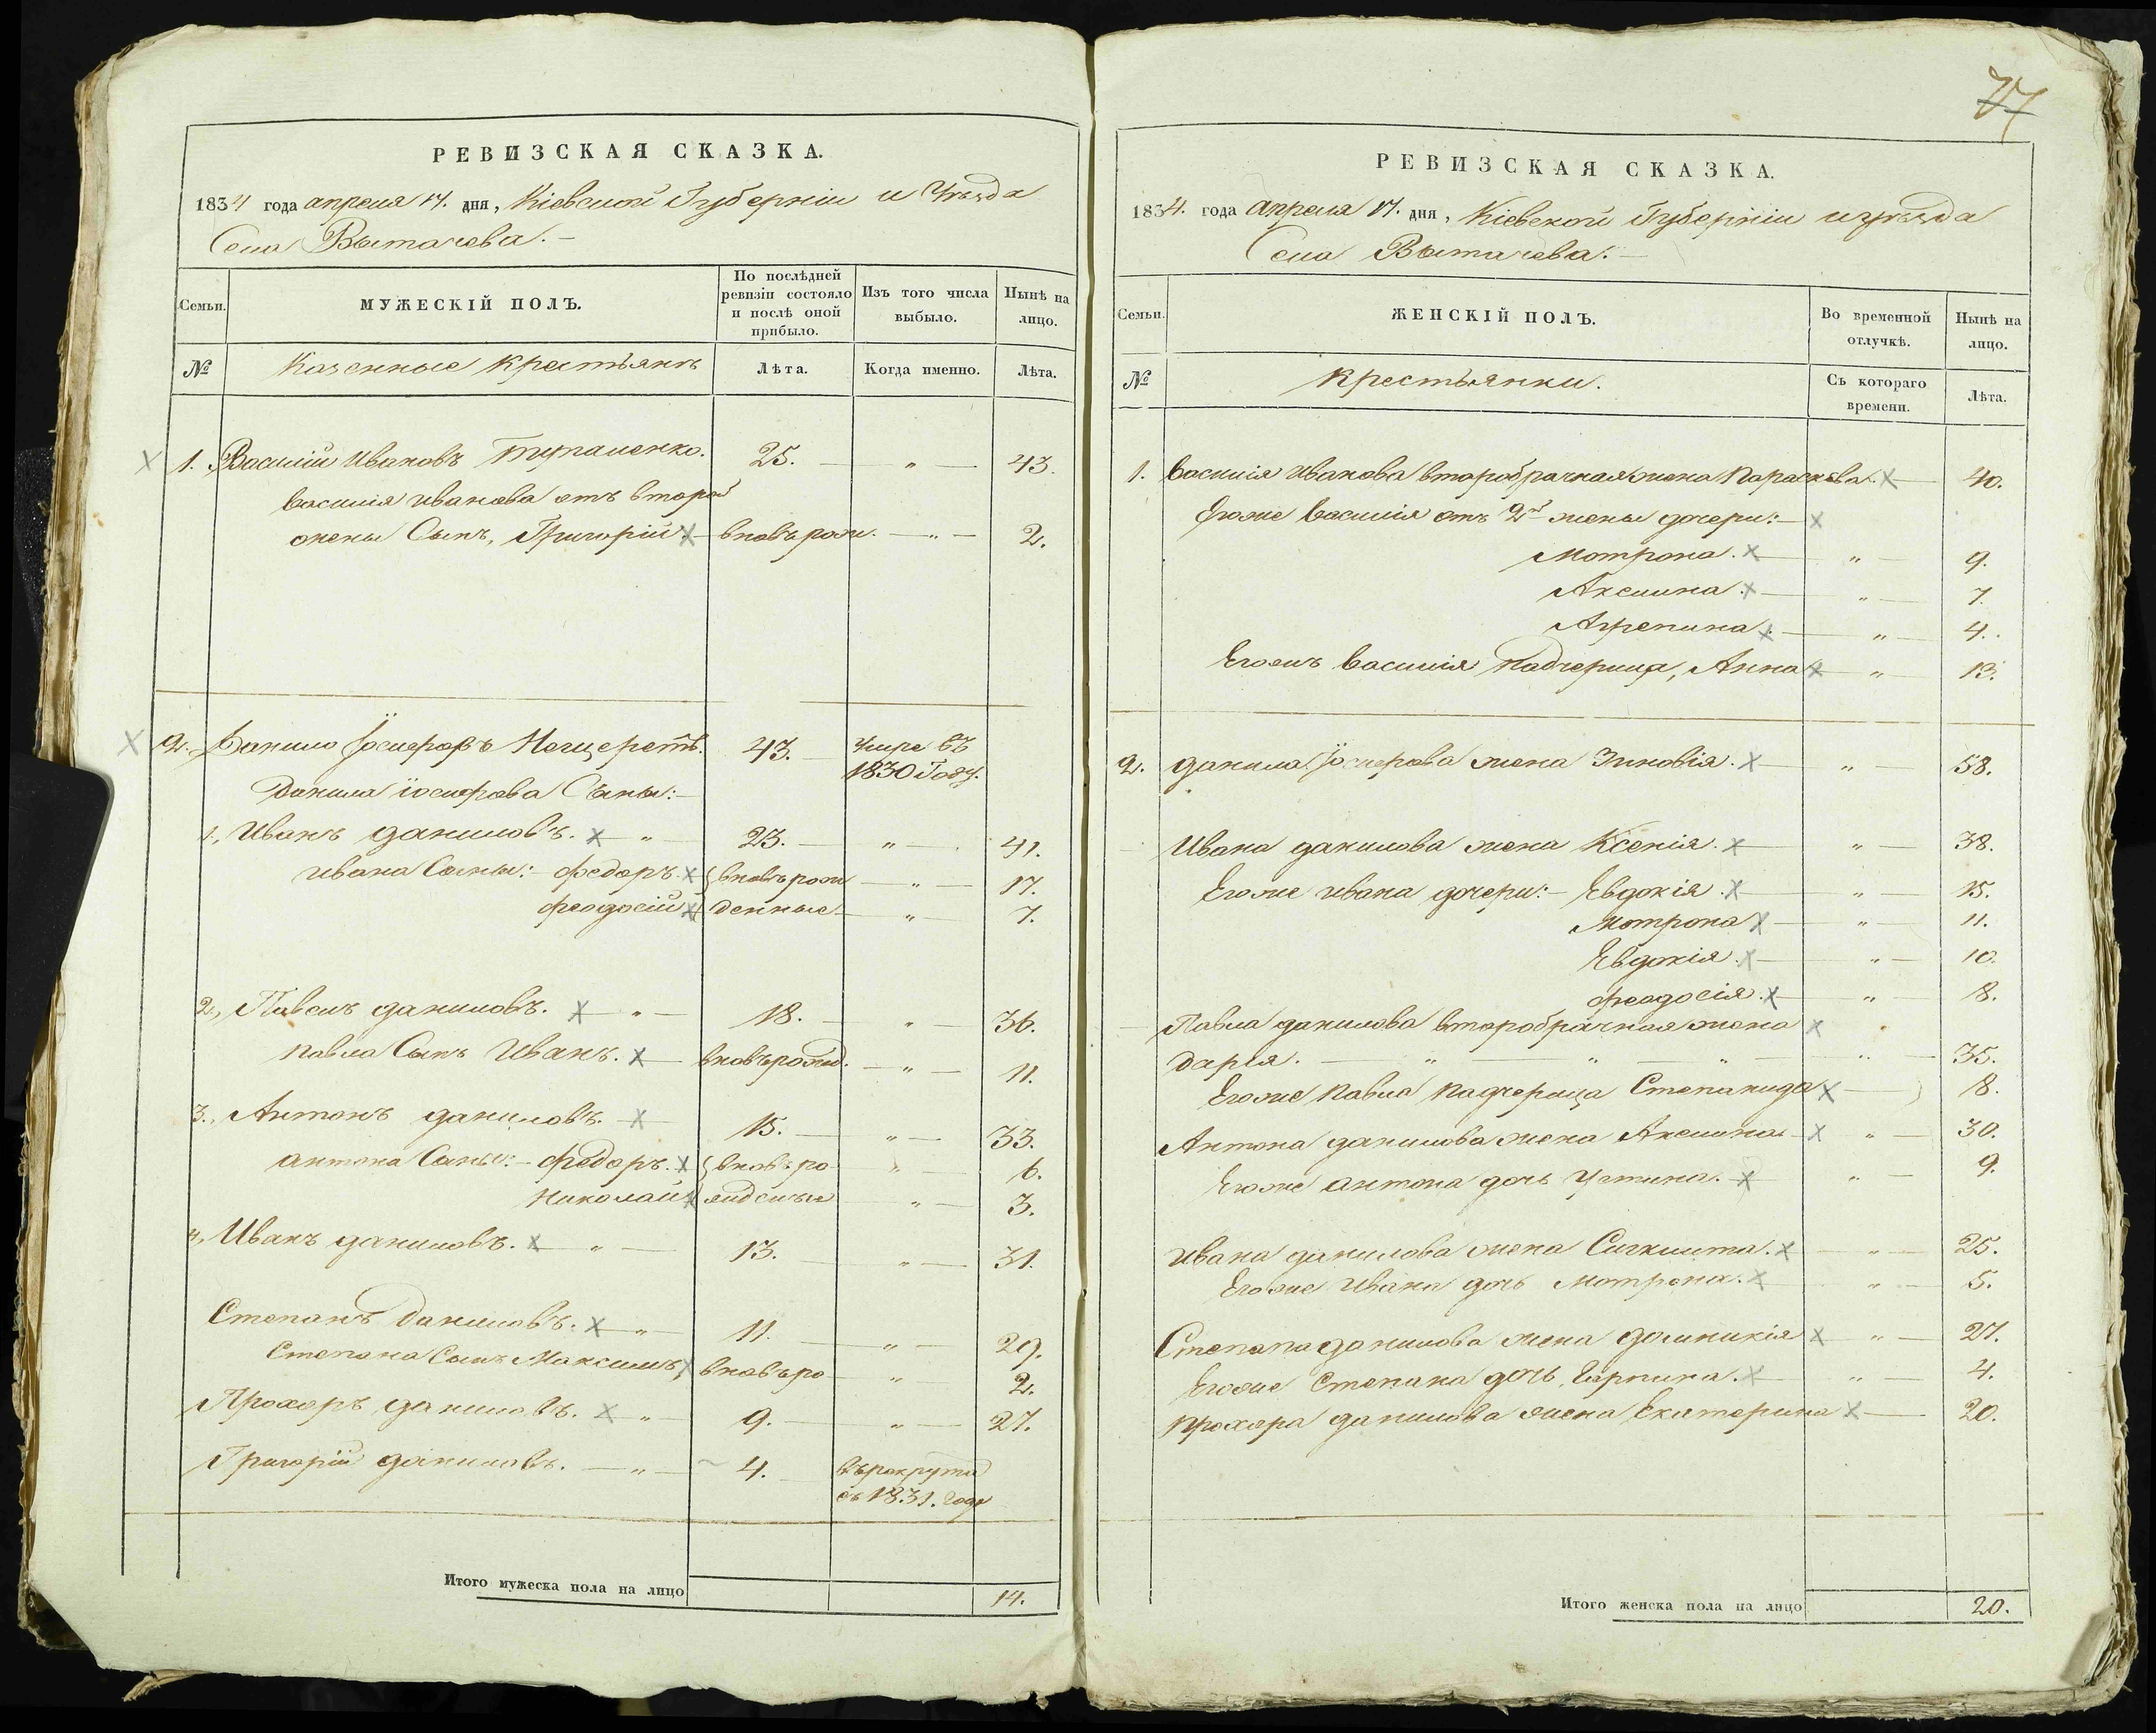 РЕВИЗСКАЯ СКАЗКА.
1834 года апреля 17. дня, Кіевской Губерніи и Уѣзда
Села Вытачева.
Семьи.
МУЖЕСКІЙ ПОЛЪ.
По послѣдней ревизіи состояло и послѣ оной прибыло.
Изъ того числа выбыло.
Нынѣ на лицо.
№
Казенные крестьянъ
Лѣта.
Когда именно.
Лѣта.
1. Василій Ивановъ 25. „ 43.
Василія иванова отъ второй
жены Сынъ, Григорій вновь рож. „ 2.
2. Данило Іосифовъ 43. умре въ
1830 Году.
Данила іосифова Сыны:
1., Иванъ даниловъ. „ 23. „ 41.
ивана Сыны: федоръ вновь рож „ 17.
феодосій денные „ 7.
2., Павелъ даниловъ. „ 18. „ 36.
павла Сынъ Иванъ. вновь рожд. „ 11.
3., Антонъ даниловъ. 15. „ 33.
антона Сыны: федоръ. вновь ро „ 6.
Николай жденные „ 3.
4., Иванъ даниловъ. „ 13. „ 31.
Степанъ Даниловъ. „ 11. „ 29.
Степана Сынъ Максимъ, вновь ро „ 2.
Прохоръ даниловъ. „ 9. „ 27.
Григорій даниловъ. „ 4. въ рекруты
въ 1831. году
Итого мужеска пола на лицо 14.
77
РЕВИЗСКАЯ СКАЗКА.
1834. года апреля 17. дня, Кіевской Губерніи и уѣзда
Села Вытачева.
Семьи.
ЖЕНСКІЙ ПОЛЪ.
Во временной отлучкѣ.
Нынѣ на лицо.
№
Крестьянки.
Съ котораго времени.
Лѣта.
1. василія иванова второбрачная жена Параскева. 40.
Егоже василія отъ 2й жены дочери:
Мотрона. „ 9.
Аксинна. „ 7.
Агрепина. „ 4.
Егожъ василія падчерица, Анна „ 13.
2. данила Іосифова жена Зиновія. „ 58.
Ивана данилова жена Ксенія. „ 38.
Егоже ивана дочери: Евдокія. „ 15.
Мотрона „ 11.
Евдокія. „ 10.
феодосія. „ 8.
Павла данилова второбрачная жена
Дарія. „ „ „ „ 35.
Егоже павла падчерица Степанида 8.
Антона данилова жена Аксинна „ 30.
Егоже антона дочь Устина. „ 9.
ивана данилова жена „ 25.
Егоже ивана дочь Мотрона. „ 5.
Степана данилова жена домникія „ 27.
Егоже Степана дочь, „ 4.
прохора данилова жена Екатерина 20.
Итого женска пола на лицо 20.